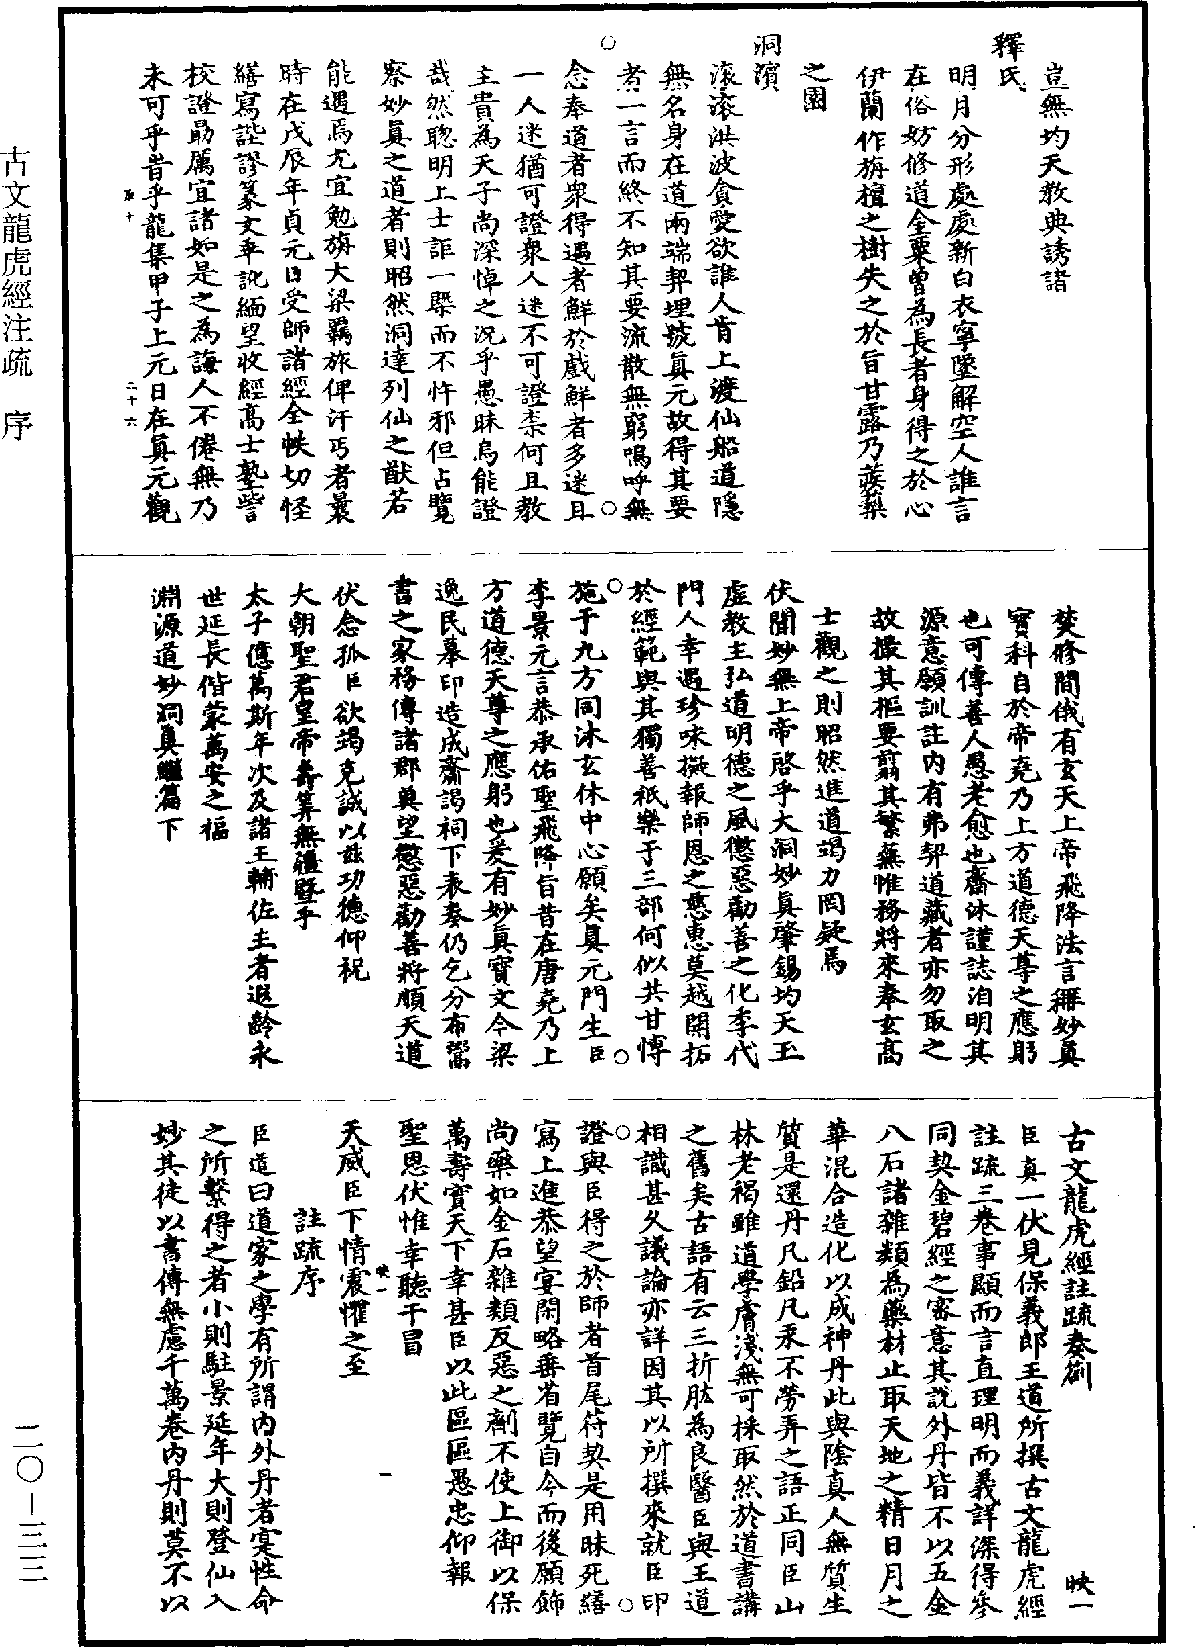 古文龍虎經注疏　序
豈無均天教典誘諸
釋氏
明月分形處處新白衣寧墜解空人誰言
在俗妨修道金粟曾為長者身得之於心
伊蘭作旃檀之樹失之於旨甘露乃蒺蔾
之園
洞濱
滚滚洪波貪愛欲誰人肯上渡仙船道隱
無名身在道兩端契理兢真元故得其要
者一言而終不知其要流散無窮嗚呼無
念奉道者衆得遇者鮮於戲鮮者多迷且
一人迷猶可證衆人迷不可證柰何且教
主貴為天子尚深悼之況乎愚昧烏能證
哉然聰明上士詎一槩而不忤邪但占覽
察妙真之道者則昭然洞達列仙之猷若
能遇焉尤宜勉旃大梁羈旅俾汗丐者曩
時在戊辰年貞元日受師諸經全帙切怪
繕寫諡謬篆文乖訛緬望收經高士塾訾
校證勗厲宜諸如是之為誨人不倦無乃
未可乎昔乎龍集甲子上元日在真元觀
二十六
焚修間俄有玄天上帝飛降法言彈妙真
寶科自於帝堯乃上方道德天尊之應躬
也可傳善人愚老愈也齋沐謹誌洎明其
源意願訓註内有弗契道藏者亦勿取之
故撮其樞要翦其繁蕪惟務將來奉玄高
士觀之則昭然進道竭力罔疑焉
伏聞妙無上帝啓乎大洞妙真肇錫均天玉
虛教主弘道明德之風懲惡勸善之化季代
門人幸遇珍味擬報師恩之慈惠莫越開拓
於經範與其獨善祇樂于三部何似共甘博
施于九方同沐玄休中心願矣真元門生臣
李景元言恭承佑聖飛降旨昔在唐堯乃上
方道德天尊之應躬也爰有妙真寶文今梁
逸民募印造成齋謁祠下表奏仍乞分布鬻
書之家務傳諸郡奧望懲惡勸善將順天道
伏念孤臣欲竭克誠以兹功德仰祝
大朝聖君皇帝壽筭無疆暨乎
太子億萬斯年次及諸王輔佐主者遐齡永
世延長偕蒙萬安之福
淵源道妙洞真繼篇下
古文龍虎經註疏奏劄　　映一
臣真一伏見保義郎王道所撰古文龍虎經
註疏三卷事顯而言直理明而義詳深得參
同契金碧經之密意其說外丹皆不以五金
八石諸雜類為藥材止取天地之精日月之
華混合造化以成神丹此與陰真人無質生
質是還丹凡鉛凡汞不勞弄之語正同臣山
林老褐雖道學膚淺無可採取然於道書講
之舊矣古語有云三折肱為良醫臣與王道
相識甚久議論亦詳因其以所撰來就臣印
證與臣得之於師者首尾符契是用昧死繕
寫上進恭望宴閑略垂省覽自今而後願飾
尚藥如金石雜類反惡之劑不使上御以保
萬壽實天下幸甚臣以此區區愚忠仰報
聖恩伏惟幸聽干冒
天威臣下情震懼之至
映一
一
註疏序
臣道曰道家之學有所謂内外丹者寔性命
之所繫得之者小則駐景延年大則登仙入
妙其徒以書傳無慮千萬卷内丹則莫不以
二〇—三三